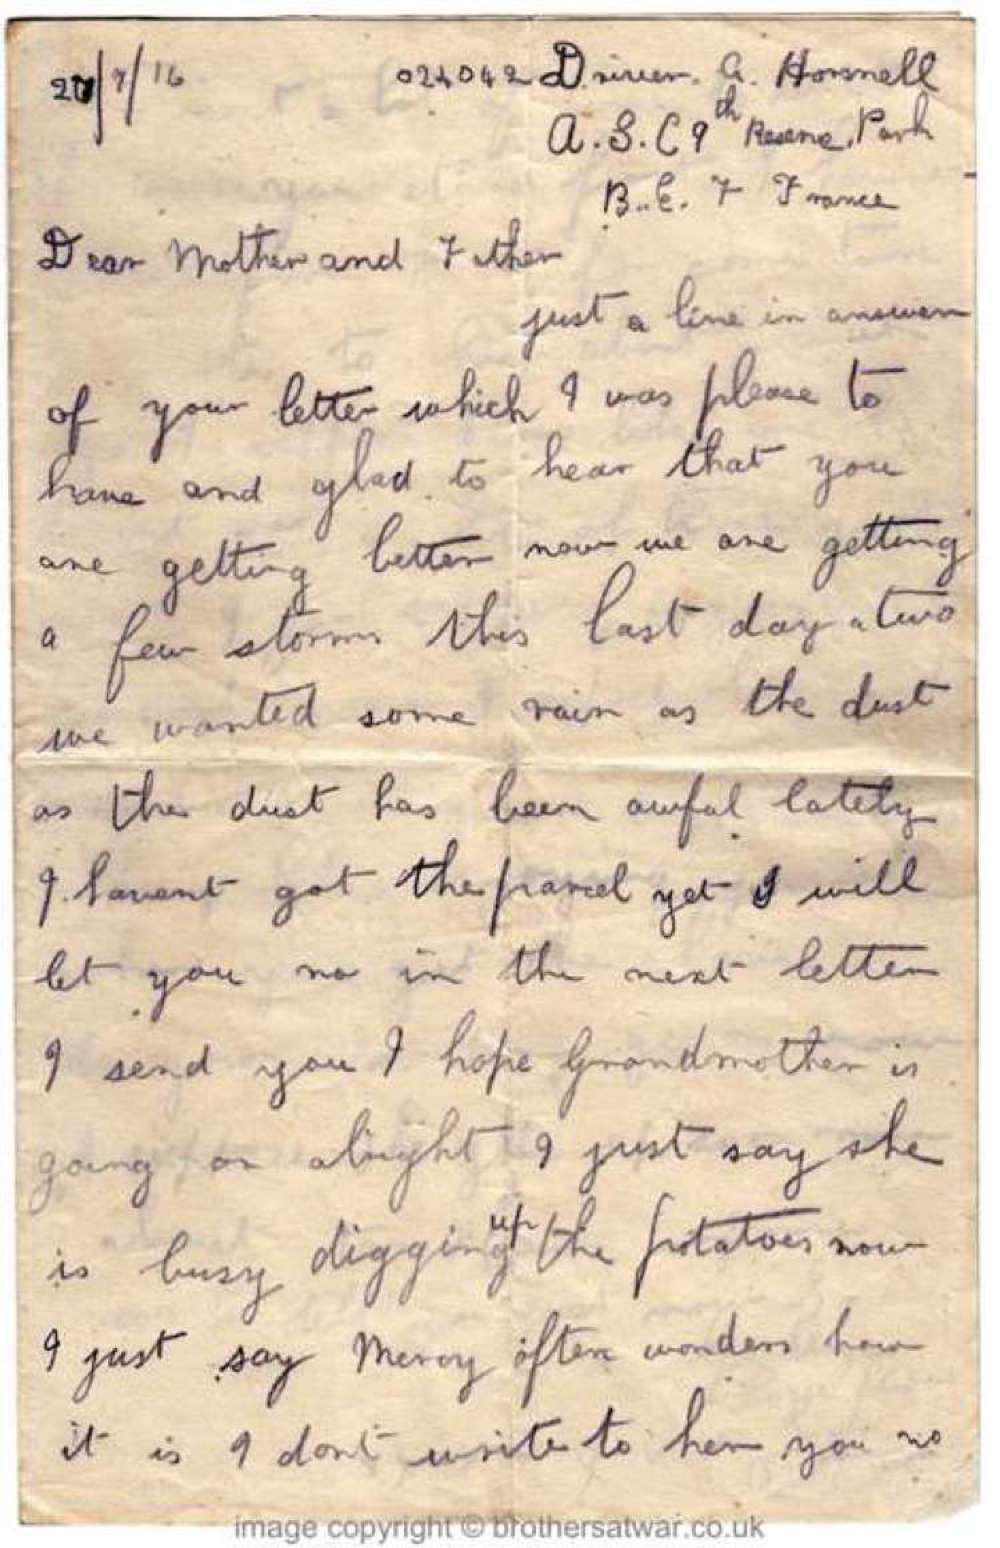 27/7/16 024042 Driver. A. Horsnell
A.S.C 9th Reserve, Park
B.E. F France
Dear Mother and Father
just a line in answer
of your letter which I was please to
have and glad to hear that you
are getting better now we are getting
a few storms this last day a two
we wanted some rain as the dust
as the dust has been awful lately
I havent got the parcel yet I will
let you no in the next letter
I send you I hope Grandmother is
going on alright I just say she
is busy digging up the potatoes now
I just say Mercy often wonders how
it is I dont write to her you no
image copyright © brothersatwar.co.uk